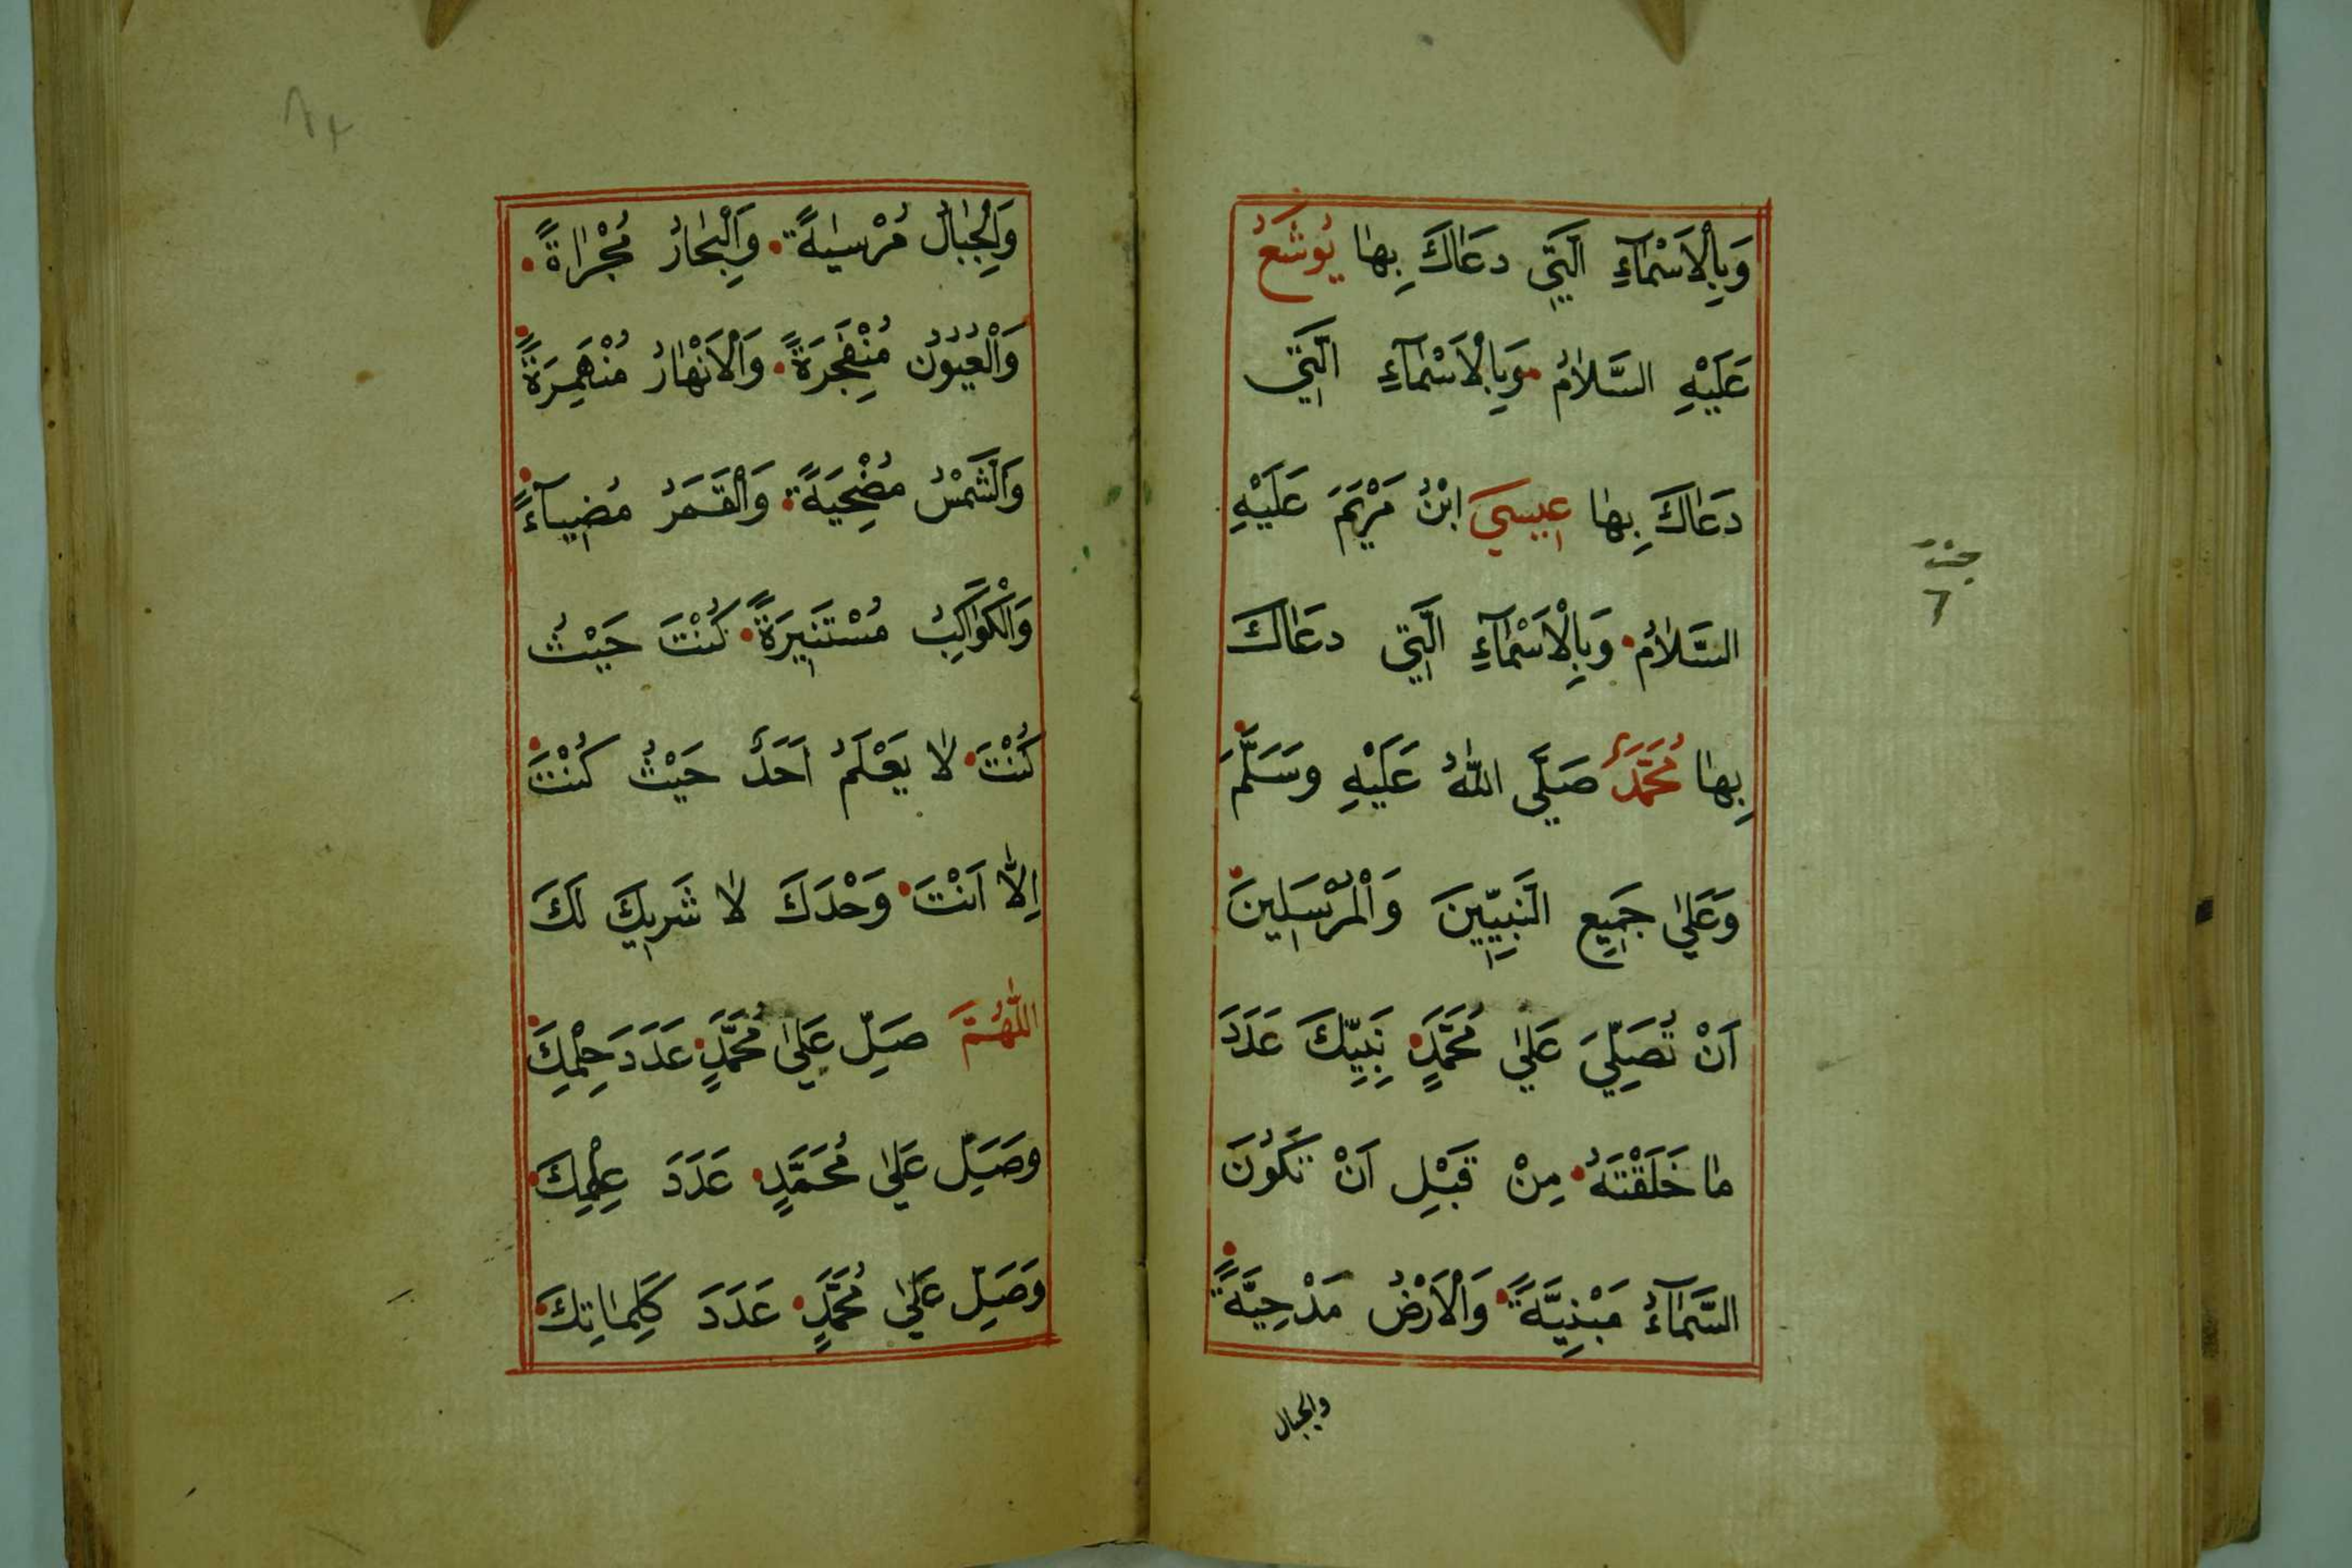 وَبِالْاَسْمَآءِ الَّتِي دَعَاكَ بِهَا يُوشَعُ
عَلَيْهِ السَّلَامُ وَبِالْاَسْمَآءِ الَّتِي
دَعَاكَ بِهَا عِيسَى ابْنُ مَرْيَمَ عَلَيْهِ
السَّلَامُ وَبِالْاَسْمَآءِ الَّتِي دَعَاكَ
بِهَا مُحَمَّدٌ صَلَّى اللّٰهُ عَلَيْهِ وَسَلَّمَ
وَعَلٰى جَمِيعِ النَّبِيِّينَ وَالْمُرْسَلِينَ
اَنْ تُصَلِّيَ عَلٰى مُحَمَّدٍ نَبِيِّكَ عَدَدَ
مَا خَلَقْتَهُ مِنْ قَبْلِ اَنْ تَكُونَ
السَّمَآءُ مَبْنِيَّةً وَالْاَرْضُ مَدْحِيَّةً
والجبال
وَالْجِبَالُ مُرْسَيةً وَالْبِحَارُ مُجْرَاةً
وَالْعُيُونُ مُنْفَجِرَةً وَالْاَنْهَارُ مُنْهَمِرَةً
وَالشَّمْسُ مُضْحِيَةً وَالْقَمَرُ مُضِيآءً
وَالْكَوَاكِبُ مُسْتَنِيرَةً كُنْتَ حَيْثُ
كُنْتَ لَا يَعْلَمُ اَحَدٌ حَيْثُ كُنْتَ
اِلَّا اَنْتَ وَحْدَكَ لَا شَرِيكَ لَكَ
اللّٰهُمَّ صَلِّ عَلٰى مُحَمَّدٍ عَدَدَ حِلْمِكَ
وَصَلِّ عَلٰى مُحَمَّدٍ عَدَدَ عِلْمِكَ
وَصَلِّ عَلٰى مُحَمَّدٍ عَدَدَ كَلِمَاتِكَ